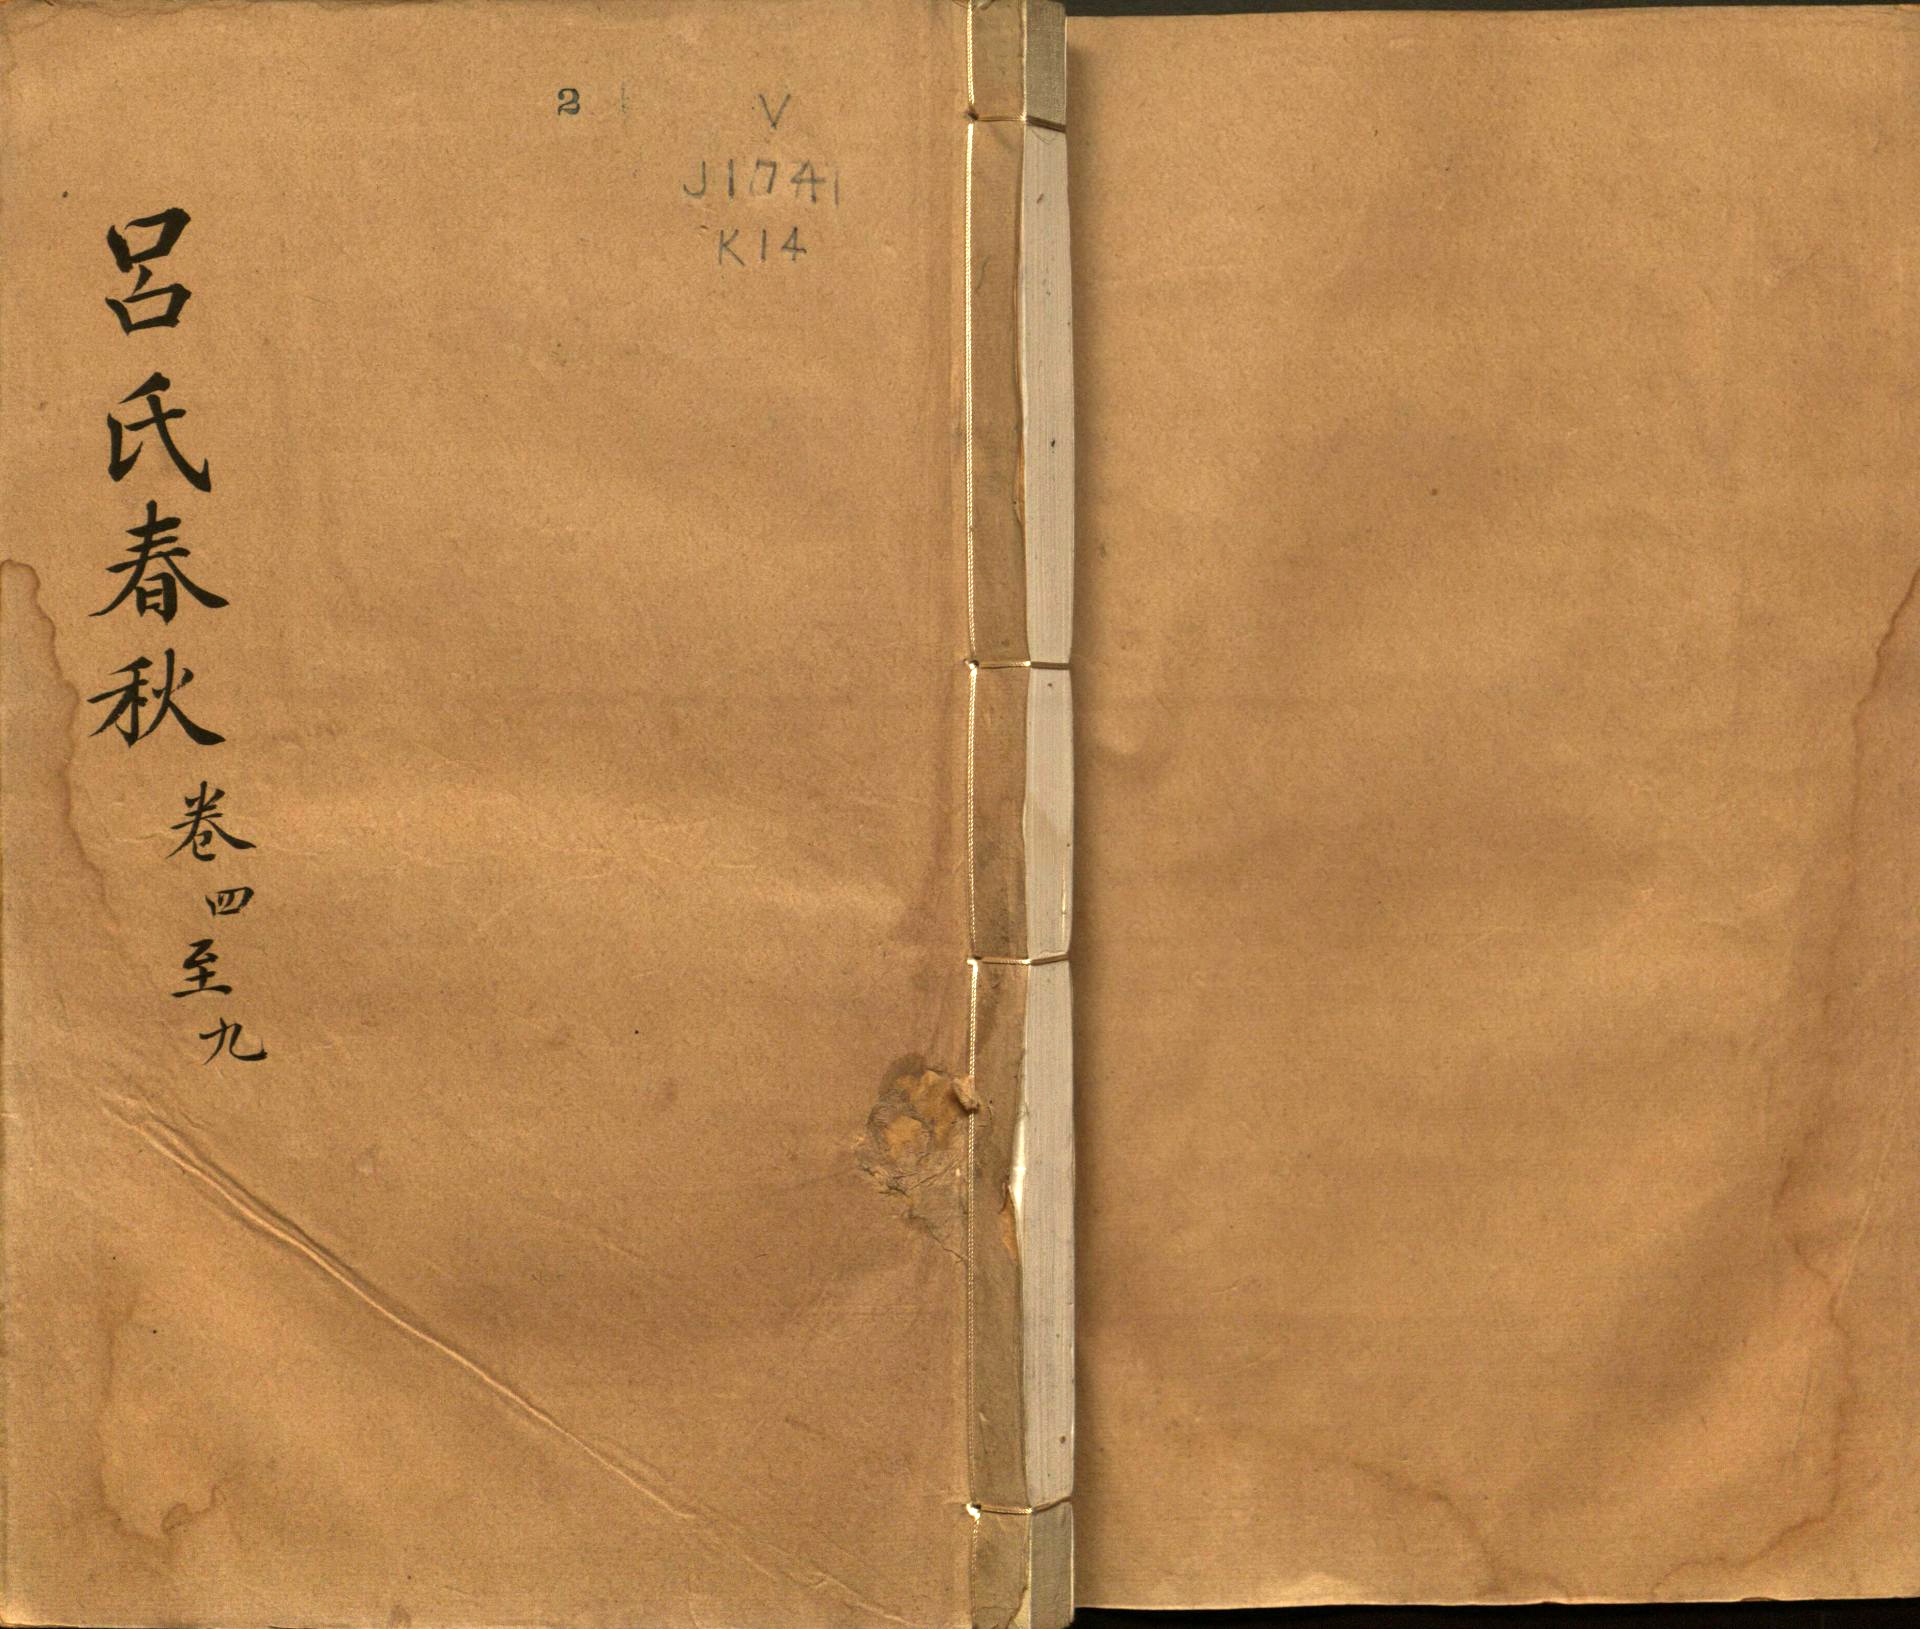 呂氏春秋
卷四至九
2
V
J1741
K14